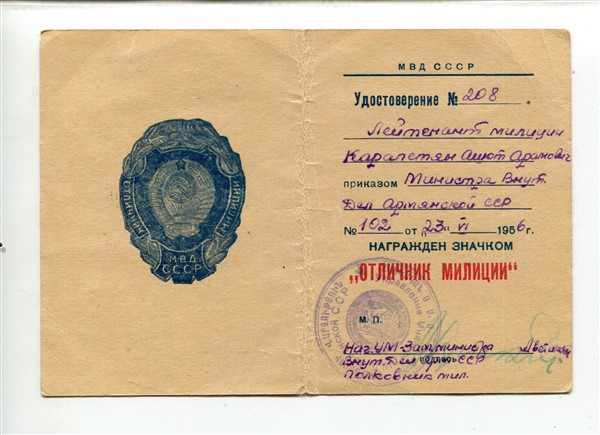 ОТЛИЧНИК МИЛИЦИИ
МВД
СССР
МВД СССР
Удостоверение № 208
Лейтенант милиции
Карапетян Ашот Арамович
приказом Министра Внут.
Дел Армянской ССР
№ 102 от „23“ VI 1956 г.
НАГРАЖДЕН ЗНАЧКОМ
„ОТЛИЧНИК МИЛИЦИИ“
М. П.
Нач. УМ-Зам. министра
подпись
Внут. Дел Арм. ССР
Полковник мил.